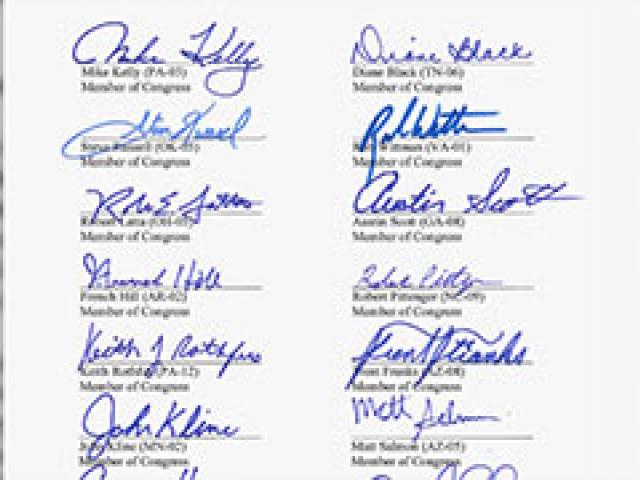 Mike Kelly
Diane Black
Mike Kelly (PA-03)
Diane Black (TN-06)
Member of Congress
Member of Congress
Steve Russell
Rob Wittman
Steve Russell (OK-05)
Rob Wittman (VA-01)
Member of Congress
Member of Congress
Robt E. Latta
Austin Scott
Robert Latta (OH-05)
Austin Scott (GA-08)
Member of Congress
Member of Congress
French Hill
Robert Pittenger
French Hill (AR-02)
Robert Pittenger (NC-09)
Member of Congress
Member of Congress
Keith J Rothfus
Trent Franks
Keith Rothfus (PA-12)
Trent Franks (AZ-08)
Member of Congress
Member of Congress
John Kline
Matt Salmon
John Kline (MN-02)
Matt Salmon (AZ-05)
Member of Congress
Member of Congress